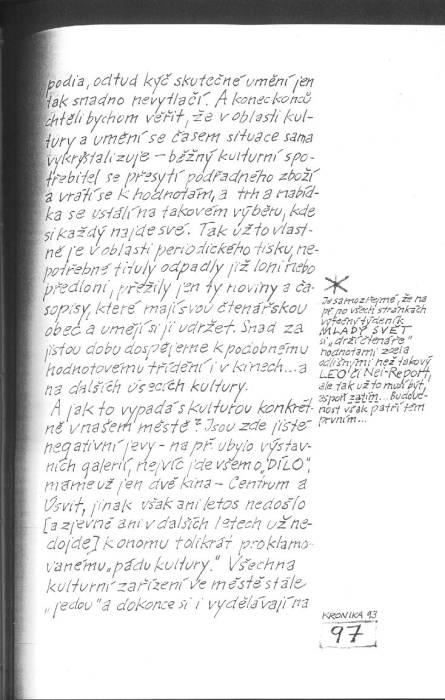 podia, odtud kýč skutečné umění jen
tak snadno nevytlačí. A koneckonců
chtěli bychom věřit, že v oblasti kul-
tury a umění se časem situace sama
vykrystalizuje – běžný kulturní spo-
třebitel se přesytí podřadného zboží
a vrátí se k hodnotám, a trh a nabíd-
ka se ustálí na takovém výběru, kde
si každý najde své. Tak už to vlast-
ně je v oblasti periodického tisku, ne-
potřebné tituly odpadly již loni nebo
předloni, přežily jen ty noviny a ča-
sopisy, které mají svou čtenářskou
obec a umějí si ji udržet. Snad za
jistou dobu dospějeme k podobnému
hodnotovému třídění i v kinech... a
na dalších úsecích kultury.
A jak to vypadá s kulturou konkrét-
ně v našem městě? Jsou zde jistě
negativní jevy - na př. ubylo výstav-
ních galerií, nejvíc jde všem o „DÍLO",
máme už jen dvě kina - Centrum a
Úsvit, jinak však ani letos nedošlo
[a zjevně ani v dalších letech už ne-
dojde] k onomu tolikrát proklamo-
vanému „pádu kultury." Všechna
kulturní zařízení ve městě stále
„jedou" a dokonce si i vydělávají na
*
Je samozřejmé, že na
př. po všech stránkách
výtečný týdeník
MLADÝ SVĚT
si „drží čtenáře"
hodnotami zcela
odlišnými než takový
LEO či Nei-Report,
ale tak už to musí být,
aspoň zatím... Budouc-
nost však patří těm
prvním...
KRONIKA 93
97